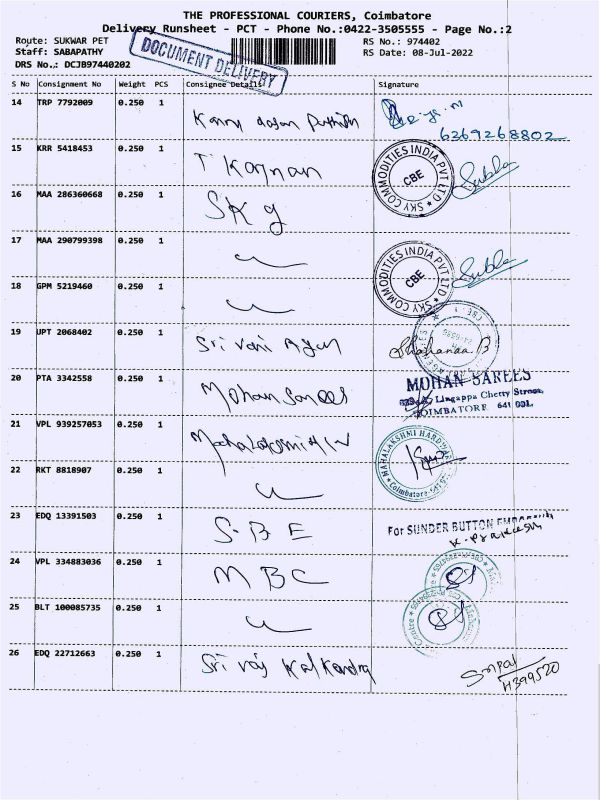 THE PROFESSIONAL COURIERS, Coimbatore
Delivery Runsheet - PCT - Phone No.:0422-3505555 - Page No.:2
Route: SUKWAR PET RS No.: 974402
Staff: SABAPATHY RS Date: 08-Jul-2022
DRS No.: DCJB97440202
DOCUMENT DELIVERY
S No Consignment No Weight PCS Consignee Details Signature
14 TRP 7792009 0.250 1
6269268802
15 KRR 5418453 0.250 1 T Kannan SKY COMMODITIES INDIA PVT LTD CBE Subha
16 MAA 286360668 0.250 1 SKg
17 MAA 290799398 0.250 1 SKY COMMODITIES INDIA PVT LTD CBE Subha
18 GPM 5219460 0.250 1
19 UPT 2068402 0.250 1 Sri Vani Agen Shahanaa B
20 PTA 3342558 0.250 1 Mohan Sarees MOHAN SAREES
Lingappa Chetty Street,
COIMBATORE 641 001.
21 VPL 939257053 0.250 1 MAHALAKSHMI HARDWARE Coimbatore
22 RKT 8818907 0.250 1
23 EDQ 13391503 0.250 1 S-BE For SUNDER BUTTON EMPORIUM
K. Prakash
24 VPL 334883036 0.250 1 MBC
25 BLT 100085735 0.250 1
26 EDQ 22712663 0.250 1 Sri raj